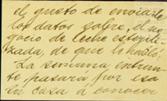 el gusto de enviarle
los datos sobre, el ne
gocio de leche esterili
zada, de que le hablé.
La semana entran
te pasará por esa
su casa a conocer